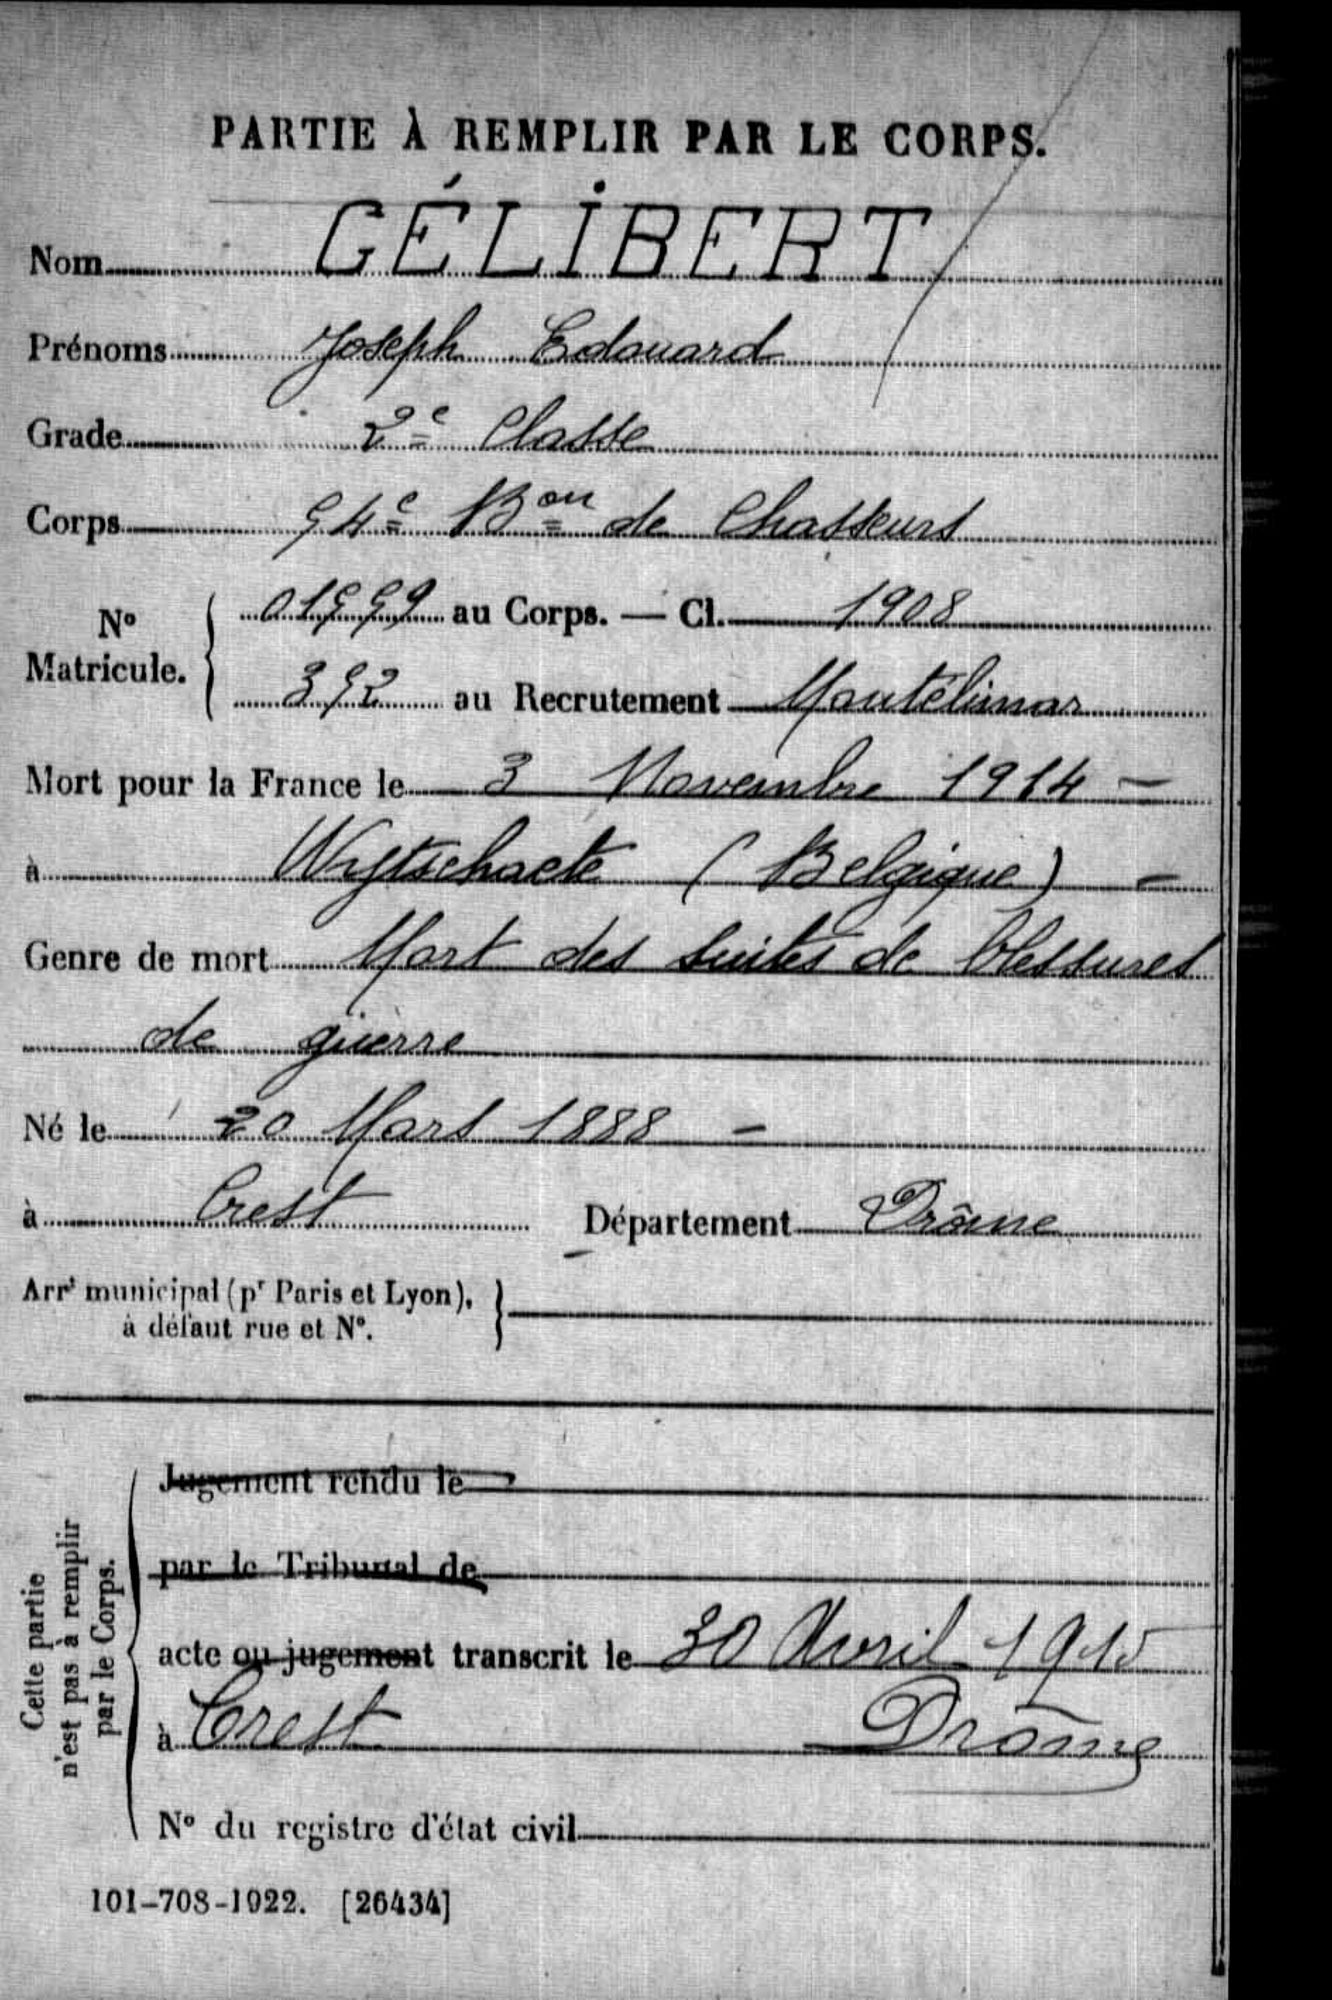 PARTIE À REMPLIR PAR LE CORPS.
Nom GÉLIBERT
Prénoms Joseph Edouard
Grade 2e Classe
Corps 54e Bon de Chasseurs
No Matricule. 01559 au Corps. — Cl. 1908
352 au Recrutement Montélimar
Mort pour la France le 3 Novembre 1914 —
à Wytschaete (Belgique) —
Genre de mort Mort des suites de blessures
de guerre
Né le 20 Mars 1888 —
à Crest Département Drôme
Arrt municipal (pr Paris et Lyon),
à défaut rue et No.
Cette partie
n'est pas à remplir
par le Corps.
Jugement rendu le
par le Tribunal de
acte ou jugement transcrit le 30 Avril 1915
à Crest Drôme
No du registre d'état civil
101-708-1922. [26434]